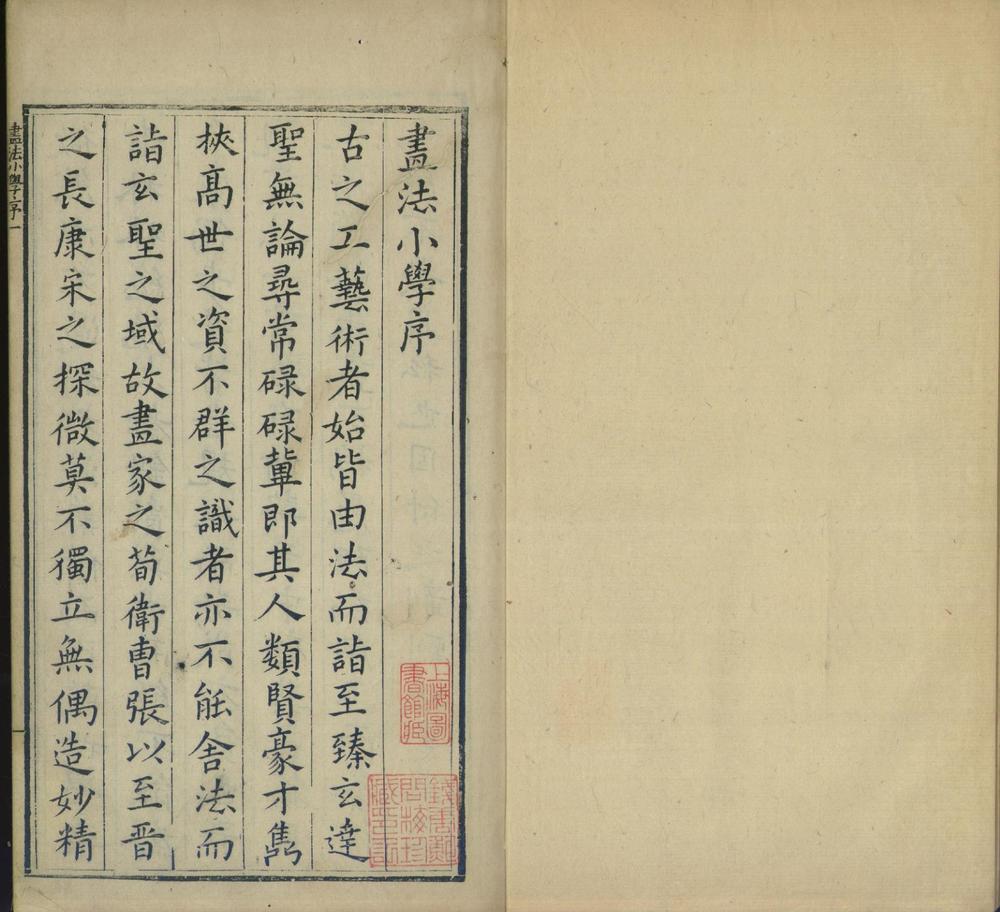 畫法小學序
古之工藝術者始皆由法而詣至臻玄達
聖無論尋常碌碌輩即其人類賢豪才雋
挾高世之資不群之識者亦不能舍法而
詣玄聖之域故畫家之荀衛曹張以至晉
之長康宋之探微莫不獨立無偶造妙精
畫法小學序一
上海圖
書館藏